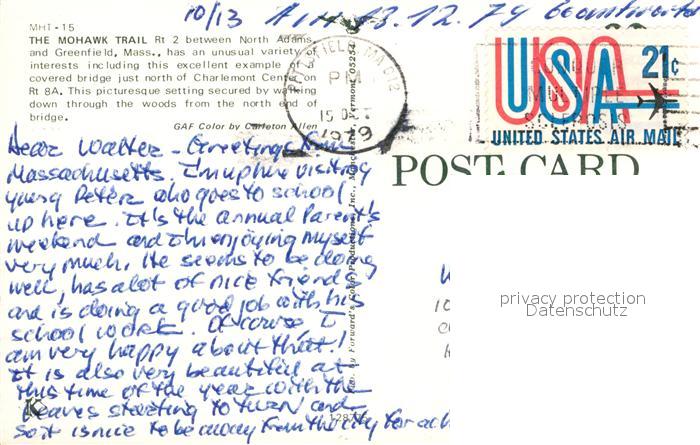 10/13 13.12.79 Beantwortet
MHT-15
THE MOHAWK TRAIL Rt 2 between North Adams
and Greenfield, Mass., has an unusual variety of
interests including this excellent example of
covered bridge just north of Charlemont Center on
Rt 8A. This picturesque setting secured by walking
down through the woods from the north end of
bridge.
GAF Color by Carleton Allen
PITTSFIELD, MA 012
PM
15 OCT
1979
USA 21c
UNITED STATES AIR MAIL
POST CARD
Dear Walter - Greetings from
Massachusetts. I'm up here visiting
young Peter who goes to school
up here. It's the annual Parent's
weekend and I'm enjoying myself
very much. He seems to be doing
well, has a lot of nice friends
and is doing a good job with his
school work. Of course I
am very happy about that!
It is also very beautiful at
this time of the year with the
leaves starting to turn and
so it is nice to be away from the city for a ch
Pub. by Forward's Color Productions, Inc., Manchester, Vermont 05254
K
privacy protection
Datenschutz